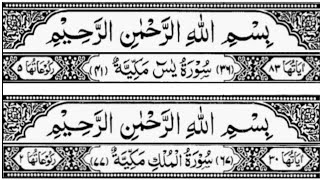 بِسْمِ اللّٰهِ الرَّحْمٰنِ الرَّحِيْمِ
اٰيَاتُهَا ٨٣ (٣٦) سُوْرَةُ يٰسٓ مَكِّيَّةٌ (٤١) رُكُوْعَاتُهَا ٥
بِسْمِ اللّٰهِ الرَّحْمٰنِ الرَّحِيْمِ
اٰيَاتُهَا ٣٠ (٦٧) سُوْرَةُ الْمُلْكِ مَكِّيَّةٌ (٧٧) رُكُوْعَاتُهَا ٢